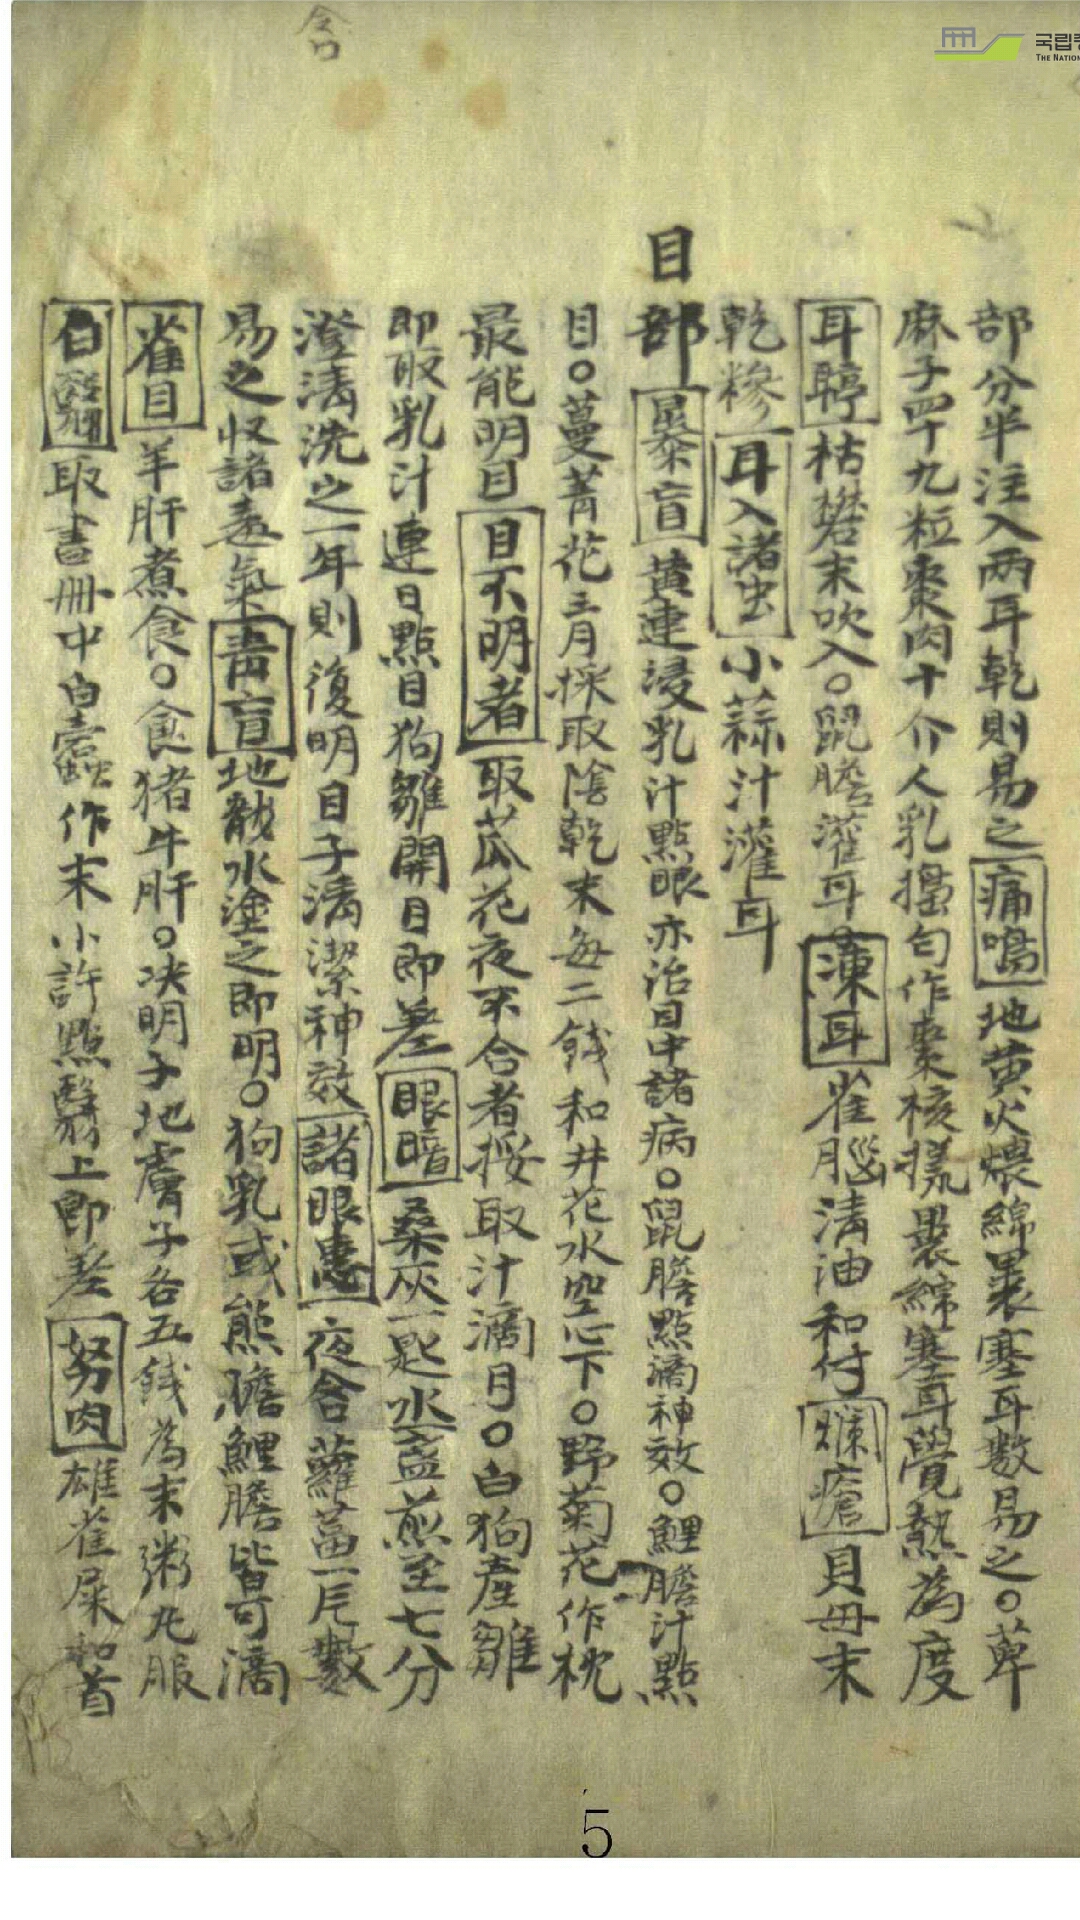 含
국립중
THE NATION
部分半注入两耳乾則易之痛鳴地黄火煨綿裹塞耳数易之○萆
麻子四十九粒棗肉十介人乳擣匀作棗核㨾裹綿塞耳覺熱為度
耳聤枯礬末吹入○鼠膽灌耳○凍耳雀腦淸油和付爛瘡貝母末
乾糝耳入諸虫小蒜汁灌耳
目部暴盲黄連浸乳汁點眼亦治目中諸病○鼠膽點滴神效○鯉膽汁點
目○蔓菁花三月採取陰乾末每二錢和井花水空心下○野菊花作枕
最能明目目不明者取苽花夜不合者挼取汁滴目○白狗産雛
即取乳汁連日點目狗雛開目即差眼暗桑灰一匙水一盞煎至七分
澄淸洗之一年則復明目子淸潔神效諸眼患夜含蘿葍一片數
易之收諸毒氣靑盲地骸水塗之即明○狗乳或熊膽鯉膽皆可滴
雀目羊肝煮食○食猪牛肝○决明子地膚子各五錢為末粥丸服
白翳取書冊中白蠹作末小許點翳上即差努肉雄雀屎和首
5